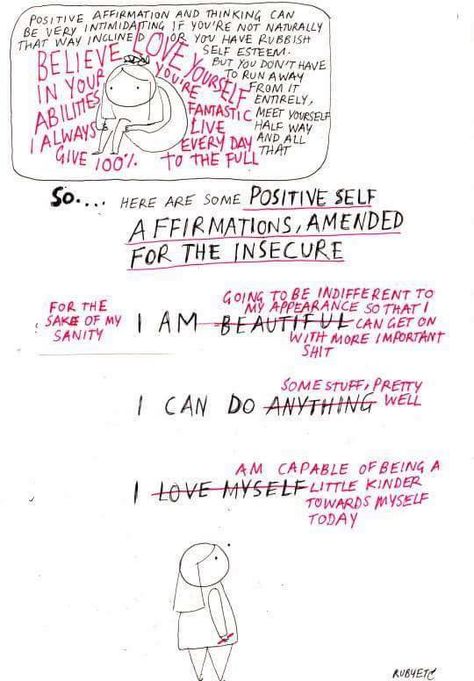 POSITIVE AFFIRMATION AND THINKING CAN
BE VERY INTIMIDATING IF YOU'RE NOT NATURALLY
THAT WAY INCLINED OR YOU HAVE RUBBISH
SELF ESTEEM.
BUT YOU DON'T HAVE
TO RUN AWAY
FROM IT
ENTIRELY,
MEET YOURSELF
HALF WAY
AND ALL
THAT
BELIEVE
IN YOUR
ABILITIES
LOVE YOURSELF
YOU'RE
FANTASTIC
I ALWAYS
GIVE 100%
LIVE
EVERY DAY
TO THE FULL
SO.... HERE ARE SOME POSITIVE SELF
AFFIRMATIONS, AMENDED
FOR THE INSECURE
FOR THE
SAKE OF MY
SANITY
I AM BEAUTIFUL
GOING TO BE INDIFFERENT TO
MY APPEARANCE SO THAT I
CAN GET ON
WITH MORE IMPORTANT
SHIT
I CAN DO ANYTHING
SOME STUFF, PRETTY
WELL
I LOVE MYSELF
AM CAPABLE OF BEING A
LITTLE KINDER
TOWARDS MYSELF
TODAY
RUBYETC